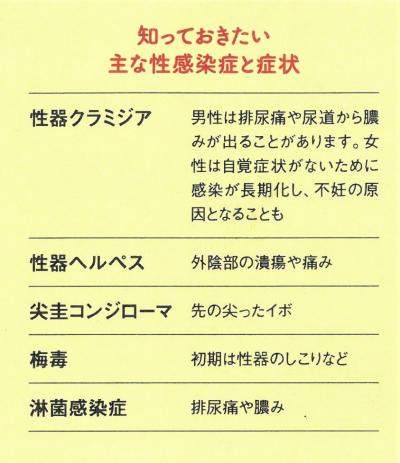 知っておきたい
主な性感染症と症状
性器クラミジア
男性は排尿痛や尿道から膿
みが出ることがあります。女
性は自覚症状がないために
感染が長期化し、不妊の原
因となることも
性器ヘルペス
外陰部の潰瘍や痛み
尖圭コンジローマ
先の尖ったイボ
梅毒
初期は性器のしこりなど
淋菌感染症
排尿痛や膿み